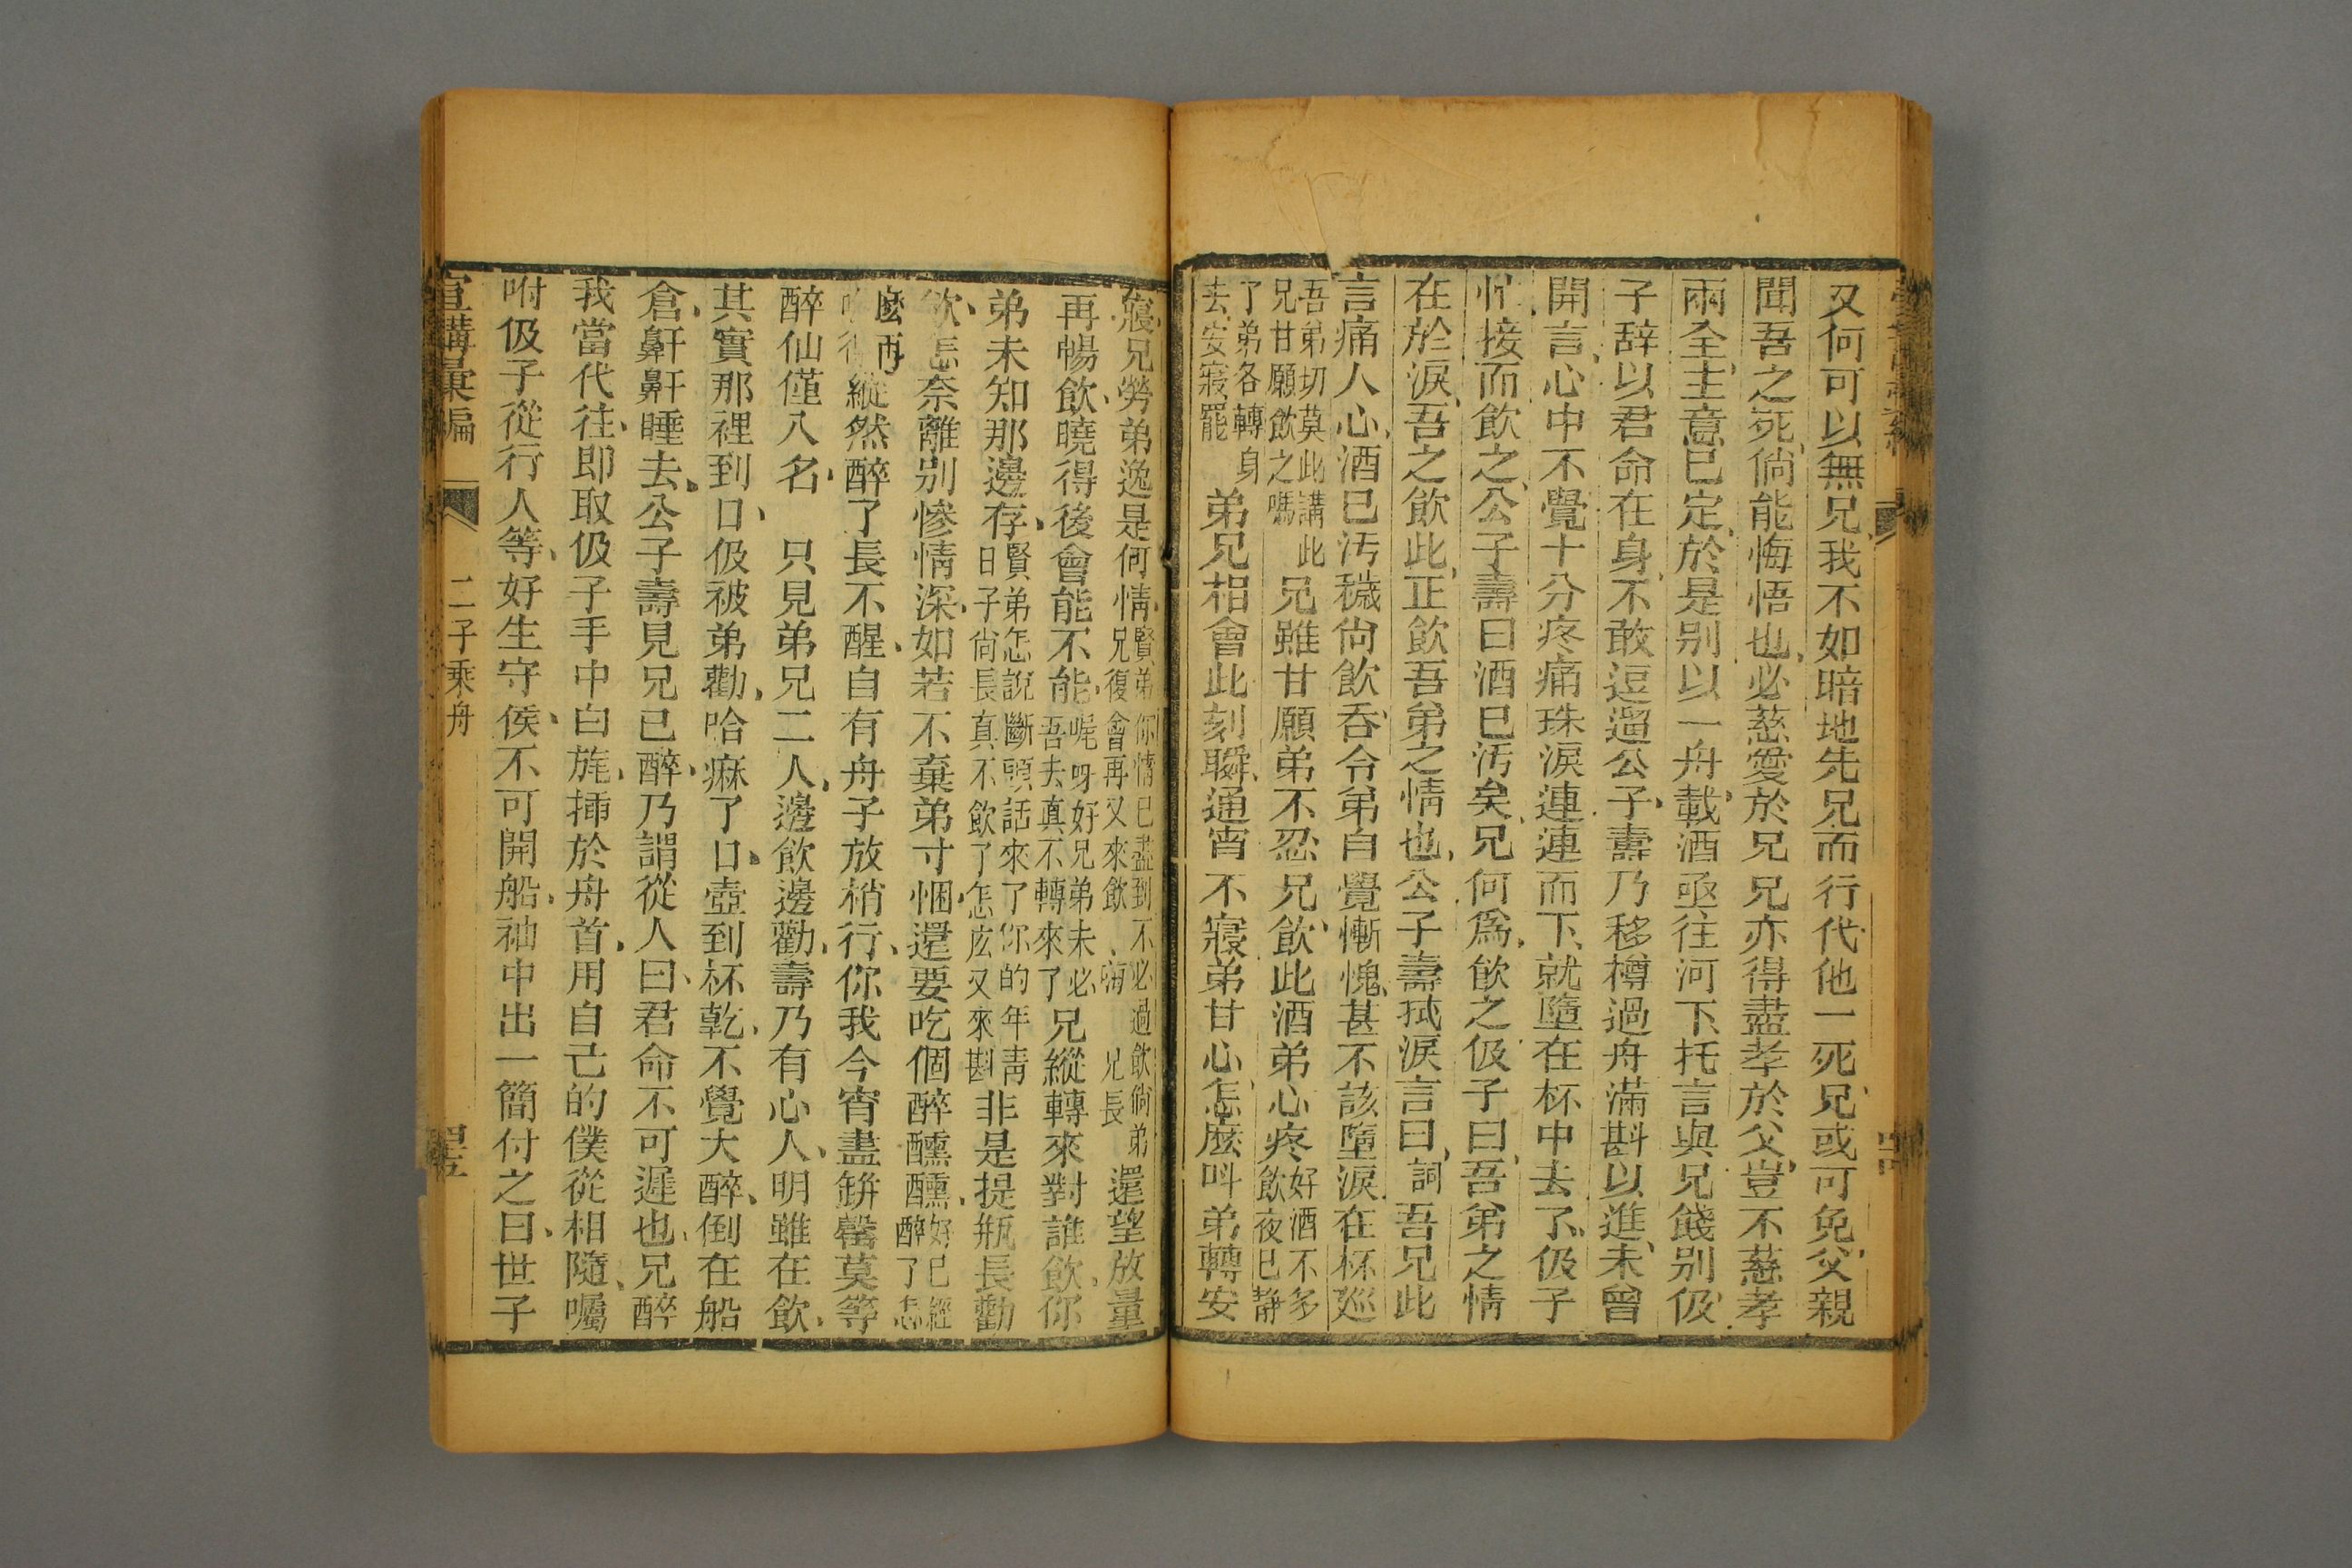 又何可以無兄、我不如暗地先兄而行代他一死、兄或可免、父親
聞吾之死、倘能悔悟也、必慈愛於兄、兄亦得盡孝於父、豈不慈孝
兩全、主意已定、於是別以一舟、載酒亟往河下、托言與兄餞别、伋
子辞以君命在身、不敢逗遛、公子壽乃移樽過舟、滿斟以進、未曾
開言、心中不覺十分疼痛、珠淚連連而下、就墮在杯中去了、伋子
忙接而飲之、公子壽曰、酒已汚矣、兄何爲飮之、伋子曰、吾弟之情
在於淚、吾之飲此、正飲吾弟之情也、公子壽拭淚言曰、詞吾兄此
言痛人心、酒已汚穢尙飲吞、令弟自覺慚愧、甚不該墮淚在杯廵
吾弟切莫此講此
兄甘願飲之嗎
兄雖甘願弟不忍、兄飲此酒弟心疼
好酒不多
飲夜已靜
了弟各轉身
去安寢罷
弟兄相會此刻瞬、通宵不寢弟甘心、怎麼呌弟轉安
寢、兄勞弟逸是何情、
賢弟你情已盡到不必過飲倘弟
兄復會再又來飲、嗨兄長
還望放量
再暢飲、曉得後會能不能、
呢呀好兄弟未必
吾去真不轉來了
兄縱轉來對誰飲、你
弟未知那邊存、
賢弟怎說斷頭話來了你的年靑
日子尙長真不飲了怎庅又來斟
非是提瓶長勸
飲、怎奈離别慘情深、如若不棄弟寸悃、還要吃個醉醺醺、
好已經
醉了怎
麽再
縱然醉了長不醒、自有舟子放梢行、你我今宵盡缾罄莫等
醉仙僅八名、只見弟兄二人、邊飲邊勸、壽乃有心人、明雖在飮、
其實那裡到口、伋被弟勸、哈麻了口、壺到杯乾、不覺大醉、倒在船
倉、鼾鼾睡去、公子壽見兄已醉、乃謂從人曰、君命不可遲也、兄醉
我當代往、卽取伋子手中白旄、揷於舟首、用自己的僕從相隨、囑
咐伋子從行人等、好生守侯、不可開船、袖中出一簡付之曰、世子
宣講彙編
二子乘舟